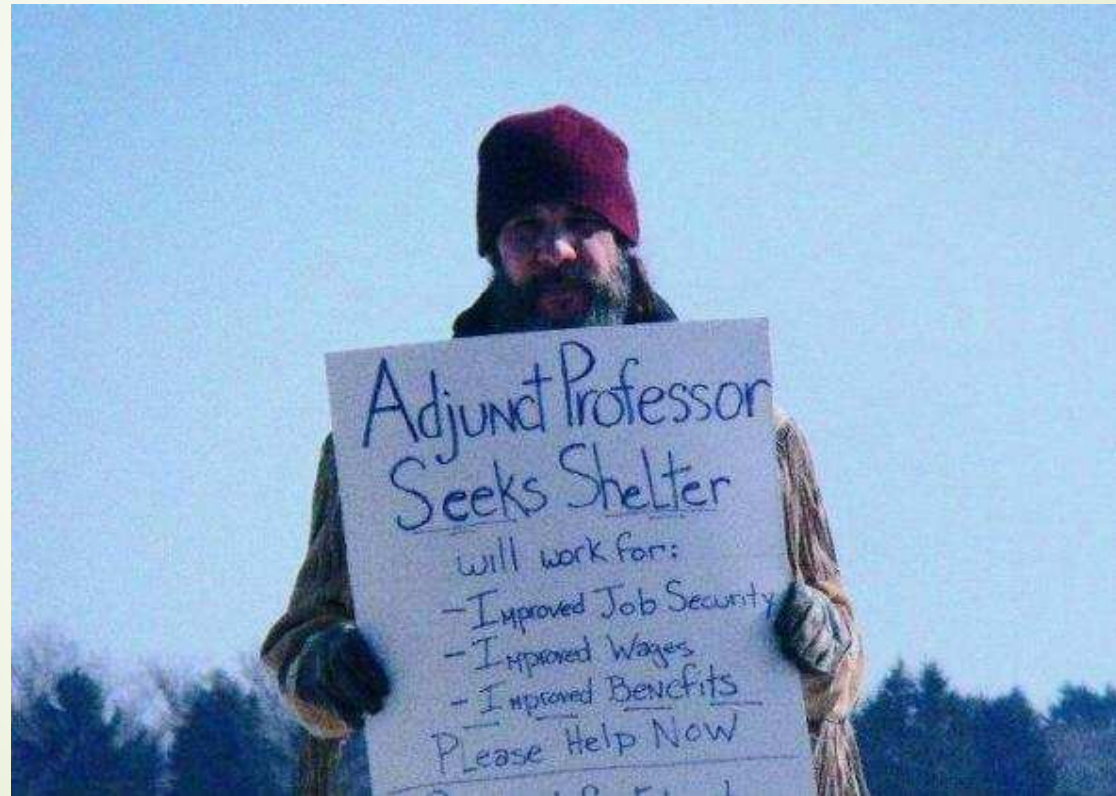 Adjunct Professor
Seeks Shelter
will work for:
- Improved Job Security
- Improved Wages
- Improved Benefits
Please Help Now